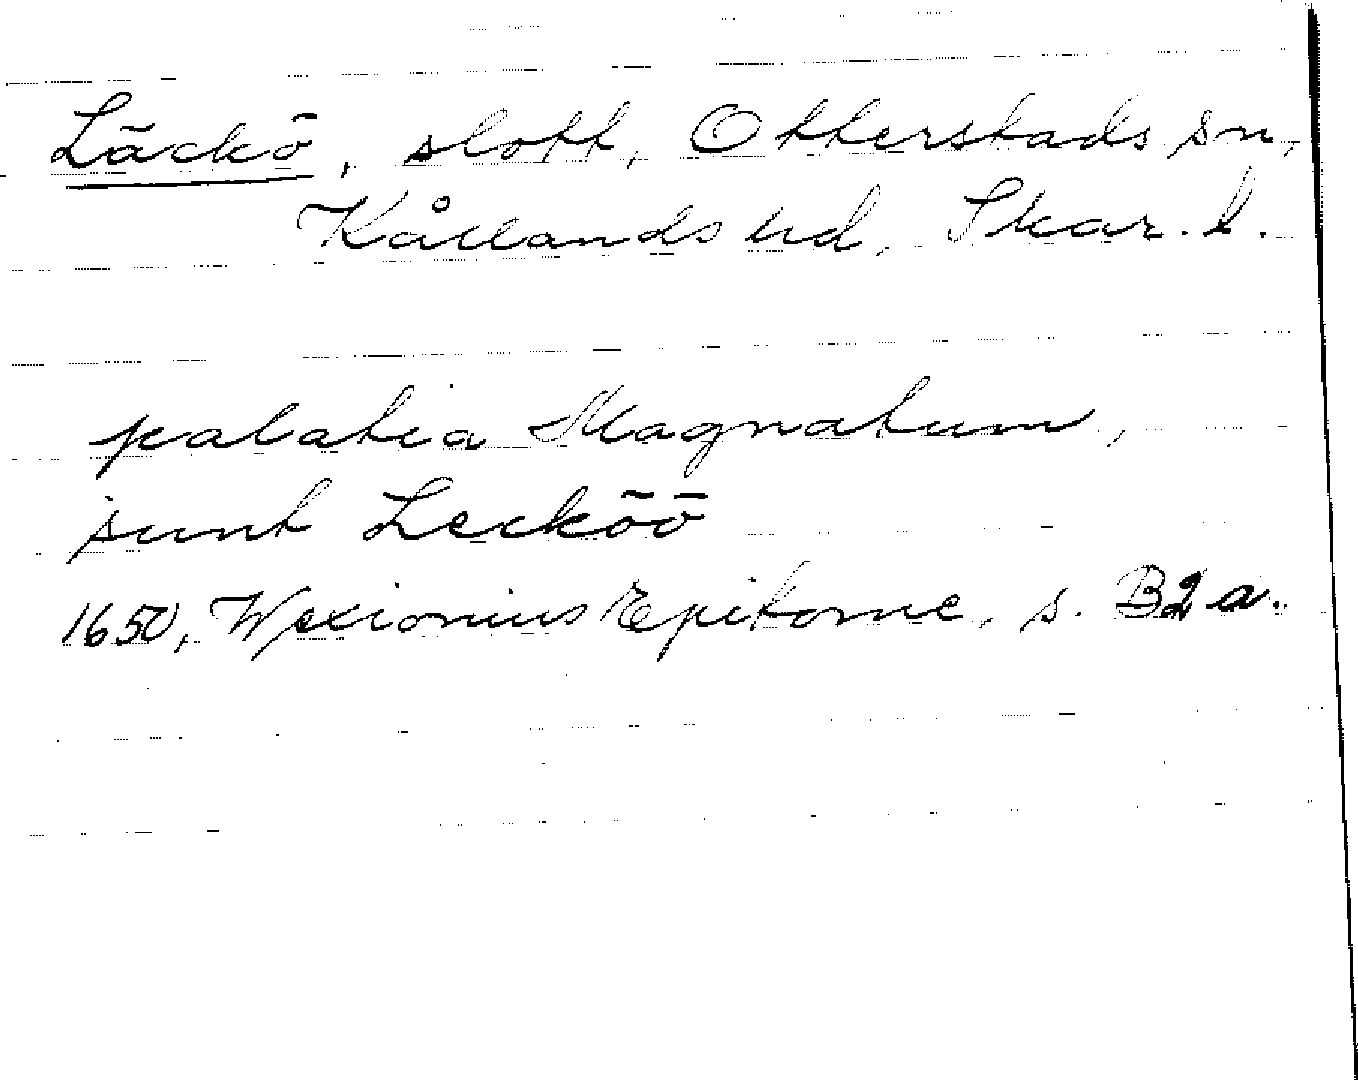 Läckö, slott, Otterstads sn,
Kållands hd, Skar. l.
palatia Magnatum,
sunt Lecköö
1650, Wexionius Epitome, s. B2a.